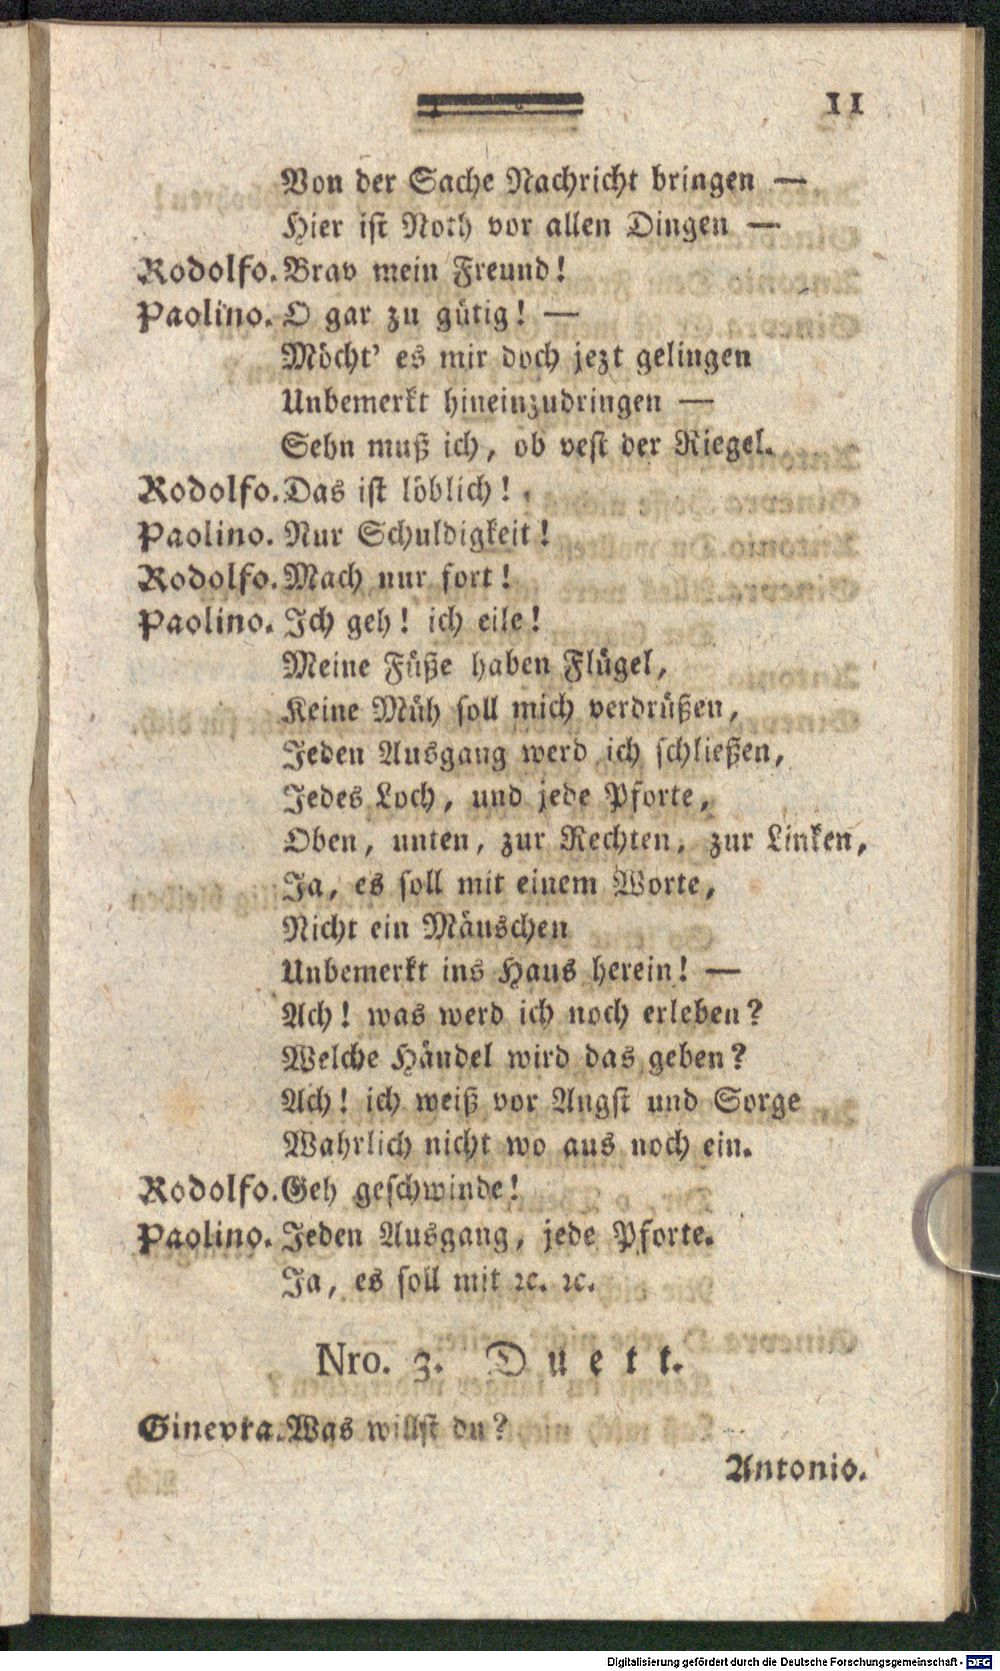 11
Von der Sache Nachricht bringen —
Hier ist Noth vor allen Dingen —
Rodolfo. Brav mein Freund!
Paolino. O gar zu gütig! —
Möcht' es mir doch jezt gelingen
Unbemerkt hineinzudringen —
Sehn muß ich, ob vest der Riegel.
Rodolfo. Das ist löblich!
Paolino. Nur Schuldigkeit!
Rodolfo. Mach nur fort!
Paolino. Ich geh! ich eile!
Meine Füße haben Flügel,
Keine Müh soll mich verdrüßen,
Jeden Ausgang werd ich schließen,
Jedes Loch, und jede Pforte,
Oben, unten, zur Rechten, zur Linken,
Ja, es soll mit einem Worte,
Nicht ein Mäuschen
Unbemerkt ins Haus herein! —
Ach! was werd ich noch erleben?
Welche Händel wird das geben?
Ach! ich weiß vor Angst und Sorge
Wahrlich nicht wo aus noch ein.
Rodolfo. Geh geschwinde!
Paolino. Jeden Ausgang, jede Pforte.
Ja, es soll mit ꝛc. ꝛc.
Nro. 3. Duett.
Ginevra. Was willst du?
Antonio.
Digitalisierung gefördert durch die Deutsche Forschungsgemeinschaft - DFG